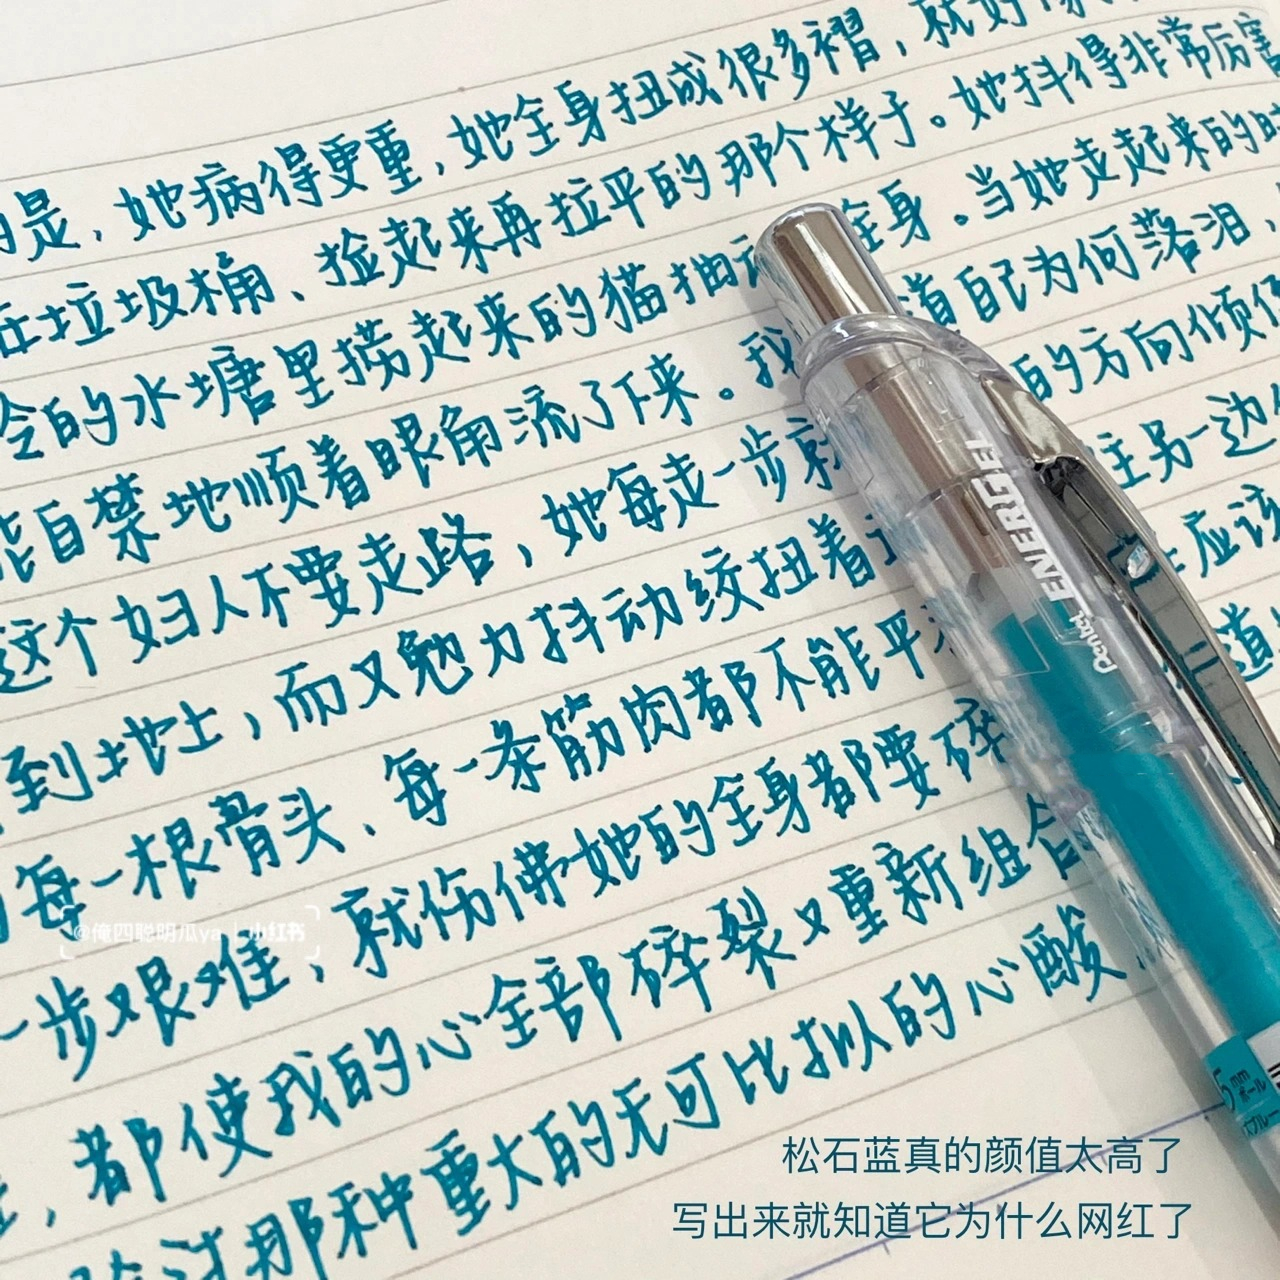 是，她病得更重，她全身扭成很多褶，就好像
在垃圾桶、捡起来再拉平的那个样子。她抖得非常厉害
的水塘里捞起来的猫抽 全身。当她走起来的时
能自禁地顺着眼角流了下来。我 道自己为何落泪，
这个妇人不要走路，她每走一步就 的方向倾
到地上，而又勉力抖动绞扭着 往另一边
每一根骨头、每一条筋肉都不能平 应该
一步艰难，就仿佛她的全身都要碎 道
，都使我的心全部碎裂又重新组合
那种重大的无可比拟的心酸
Pentel ENERGEL
5mm
ボール
@俺四聪明瓜ya | 小红书
松石蓝真的颜值太高了
写出来就知道它为什么网红了